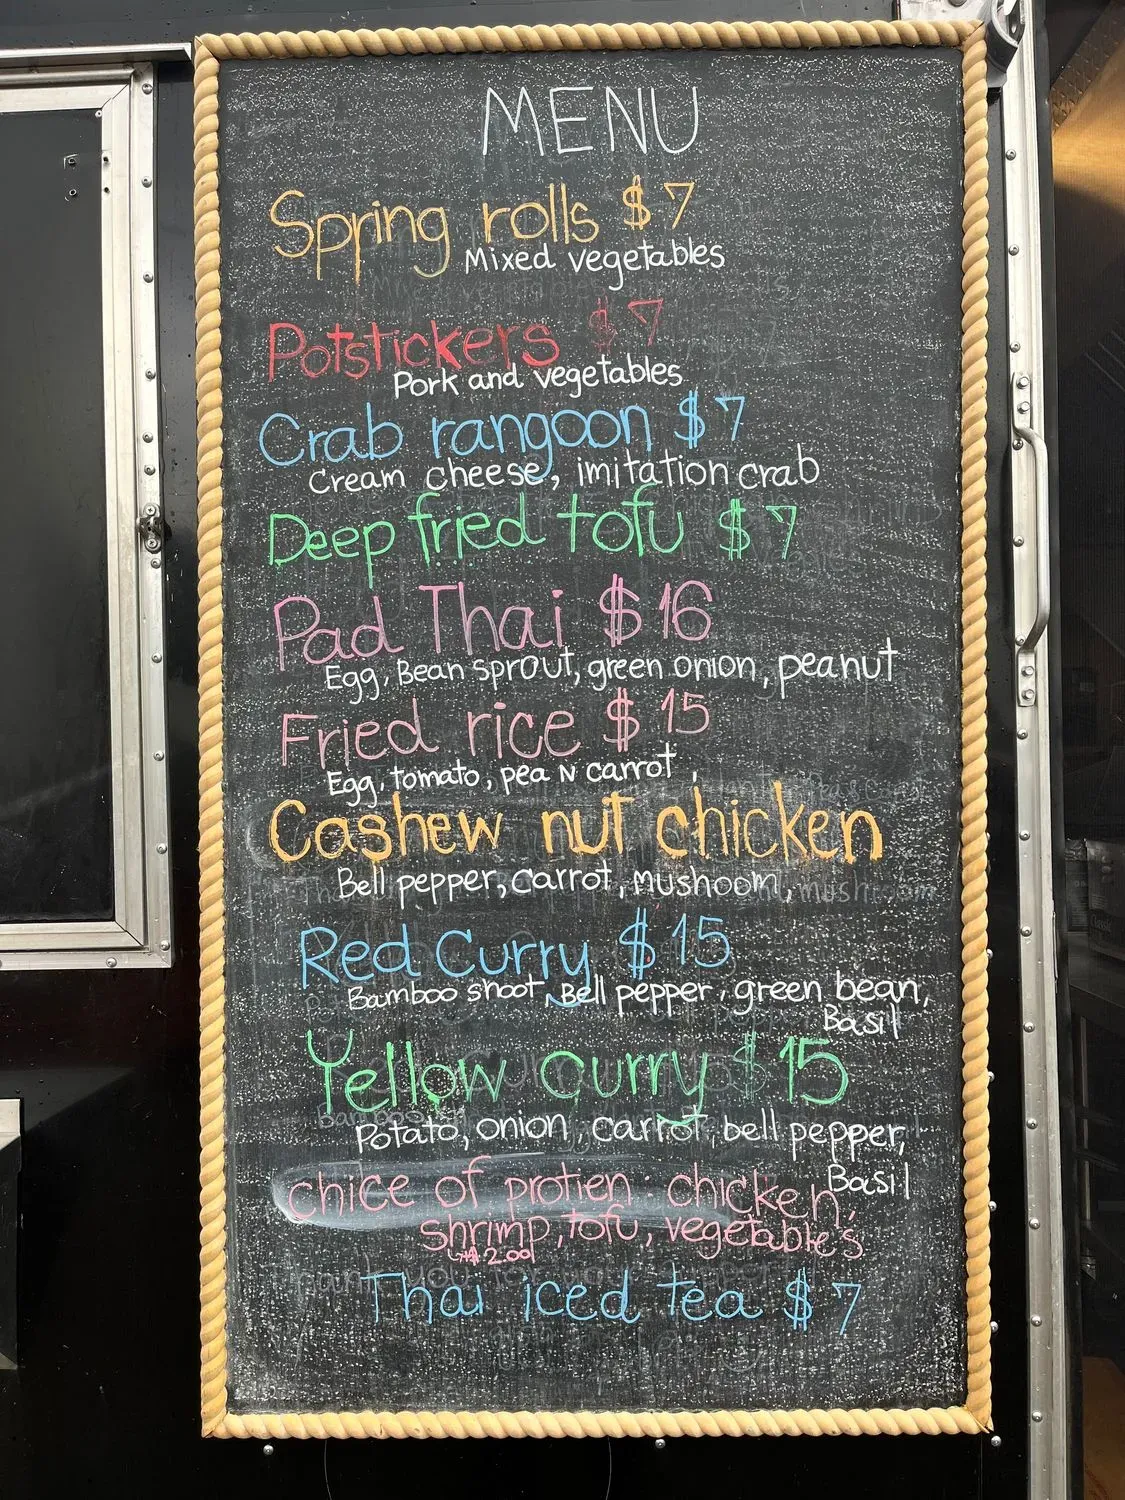 MENU
Spring rolls $7
Mixed vegetables
Potstickers $7
Pork and vegetables
Crab rangoon $7
Cream cheese, imitation crab
Deep fried tofu $7
Pad Thai $16
Egg, Bean sprout, green onion, peanut
Fried rice $15
Egg, tomato, pea N carrot,
Cashew nut chicken
Bell pepper, carrot, mushoom,
Red Curry $15
Bamboo shoot, Bell pepper, green bean,
Basil
Yellow curry $15
Potato, onion, carrot, bell pepper,
Basil
chice of protien: chicken,
shrimp, tofu, vegetable's
+$2.00
Thai iced tea $7